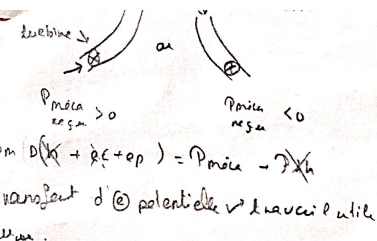 turbine
ou
P méca reçu > 0
P méca reçu < 0
D(h + ec + ep) = P méca - Pth
transfert d'e potentielle → travail utile